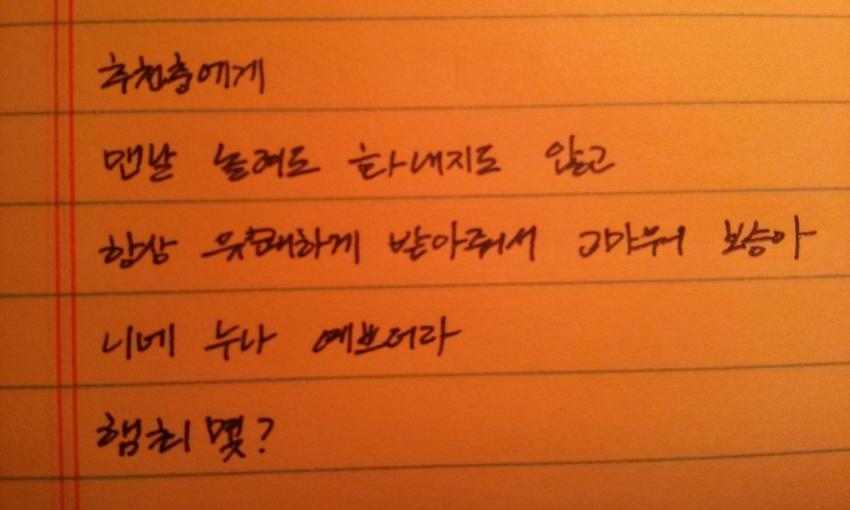 추천충에게
맨날 놀려도 화내지도 않고
항상 유쾌하게 받아줘서 고마워 보승아
니네 누나 예쁘더라
햄최몇?